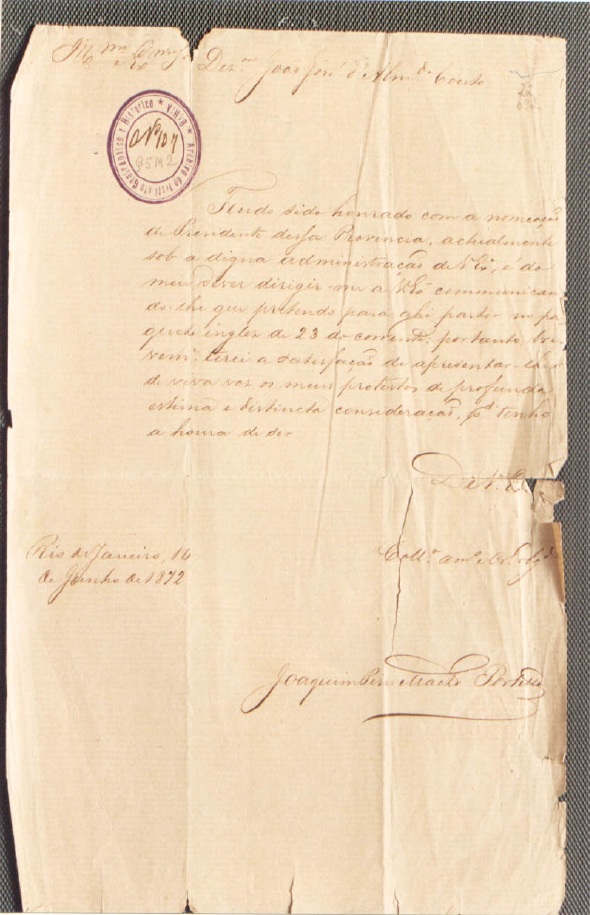 Ill.mo Exm.o Snr. Dez.or João José d'Almd.a Couto
Archivo do Instituto Geographico e Historico * B.H.I.A *
Nº 107
Tendo sido honrado com a nomeação
de Presidente dessa Provincia, actualmente
sob a digna administração de V. Ex.ª, é do
meu dever dirigir-me a V. Ex.ª communican
do-lhe que pretendo para ahi partir no pa
quete inglez de 23 do corrente; portanto, bre
vem.te terei a satisfação de apresentar-lhe
de viva voz os meus protestos de profunda
estima e distincta consideração, p.s tenho
a honra de ser
De V. Ex.ª
Rio de Janeiro, 14
de Junho de 1872
Coll.ª am.º e Cr.º obg.do
Joaquim Pires Machado Portella